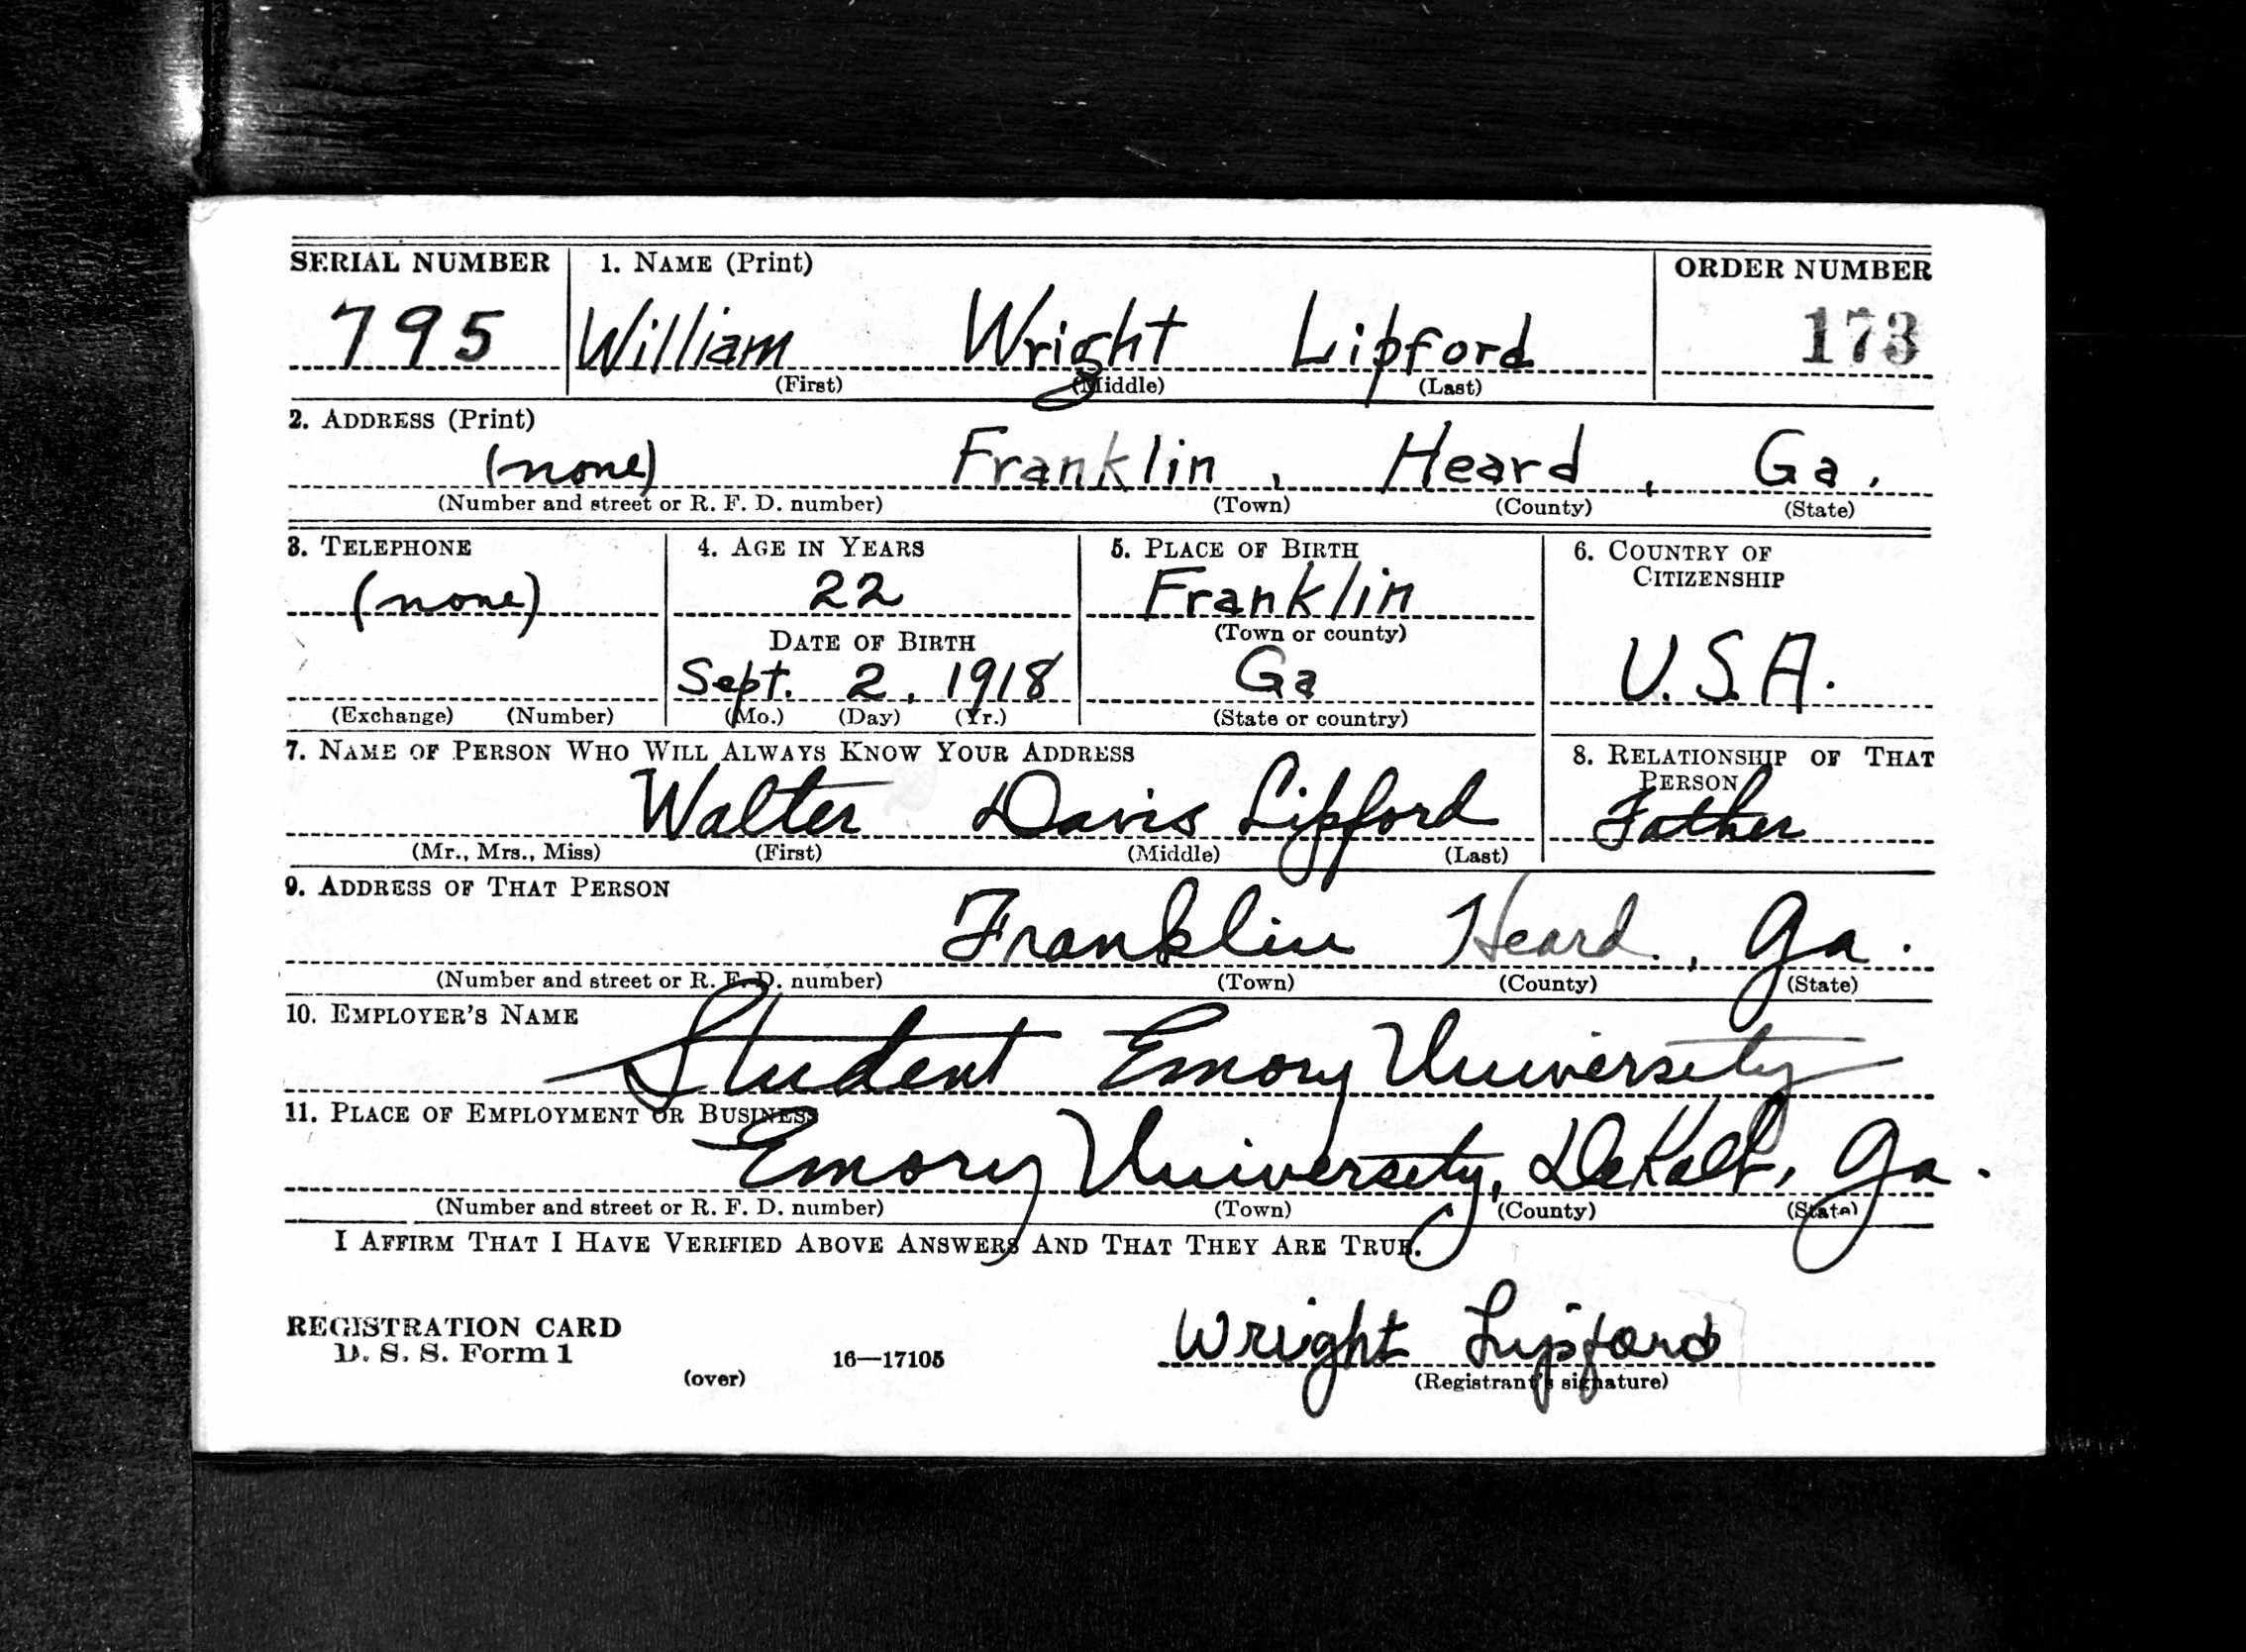 SERIAL NUMBER 1. NAME (Print) ORDER NUMBER
795 William Wright Lipford 173
(First) (Middle) (Last)
2. ADDRESS (Print)
(none) Franklin, Heard, Ga.
(Number and street or R. F. D. number) (Town) (County) (State)
3. TELEPHONE 4. AGE IN YEARS 5. PLACE OF BIRTH 6. COUNTRY OF
CITIZENSHIP
(none) 22 Franklin
(Town or county)
DATE OF BIRTH
Sept. 2, 1918 Ga U.S.A.
(Exchange) (Number) (Mo.) (Day) (Yr.) (State or country)
7. NAME OF PERSON WHO WILL ALWAYS KNOW YOUR ADDRESS 8. RELATIONSHIP OF THAT
PERSON
Walter Davis Lipford Father
(Mr., Mrs., Miss) (First) (Middle) (Last)
9. ADDRESS OF THAT PERSON
Franklin Heard, Ga.
(Number and street or R. F. D. number) (Town) (County) (State)
10. EMPLOYER'S NAME
Student Emory University
11. PLACE OF EMPLOYMENT OR BUSINESS
Emory University, DeKalb, Ga.
(Number and street or R. F. D. number) (Town) (County) (State)
I AFFIRM THAT I HAVE VERIFIED ABOVE ANSWERS AND THAT THEY ARE TRUE.
Wright Lipford
REGISTRATION CARD
D. S. S. Form 1 16—17105
(over) (Registrant's signature)